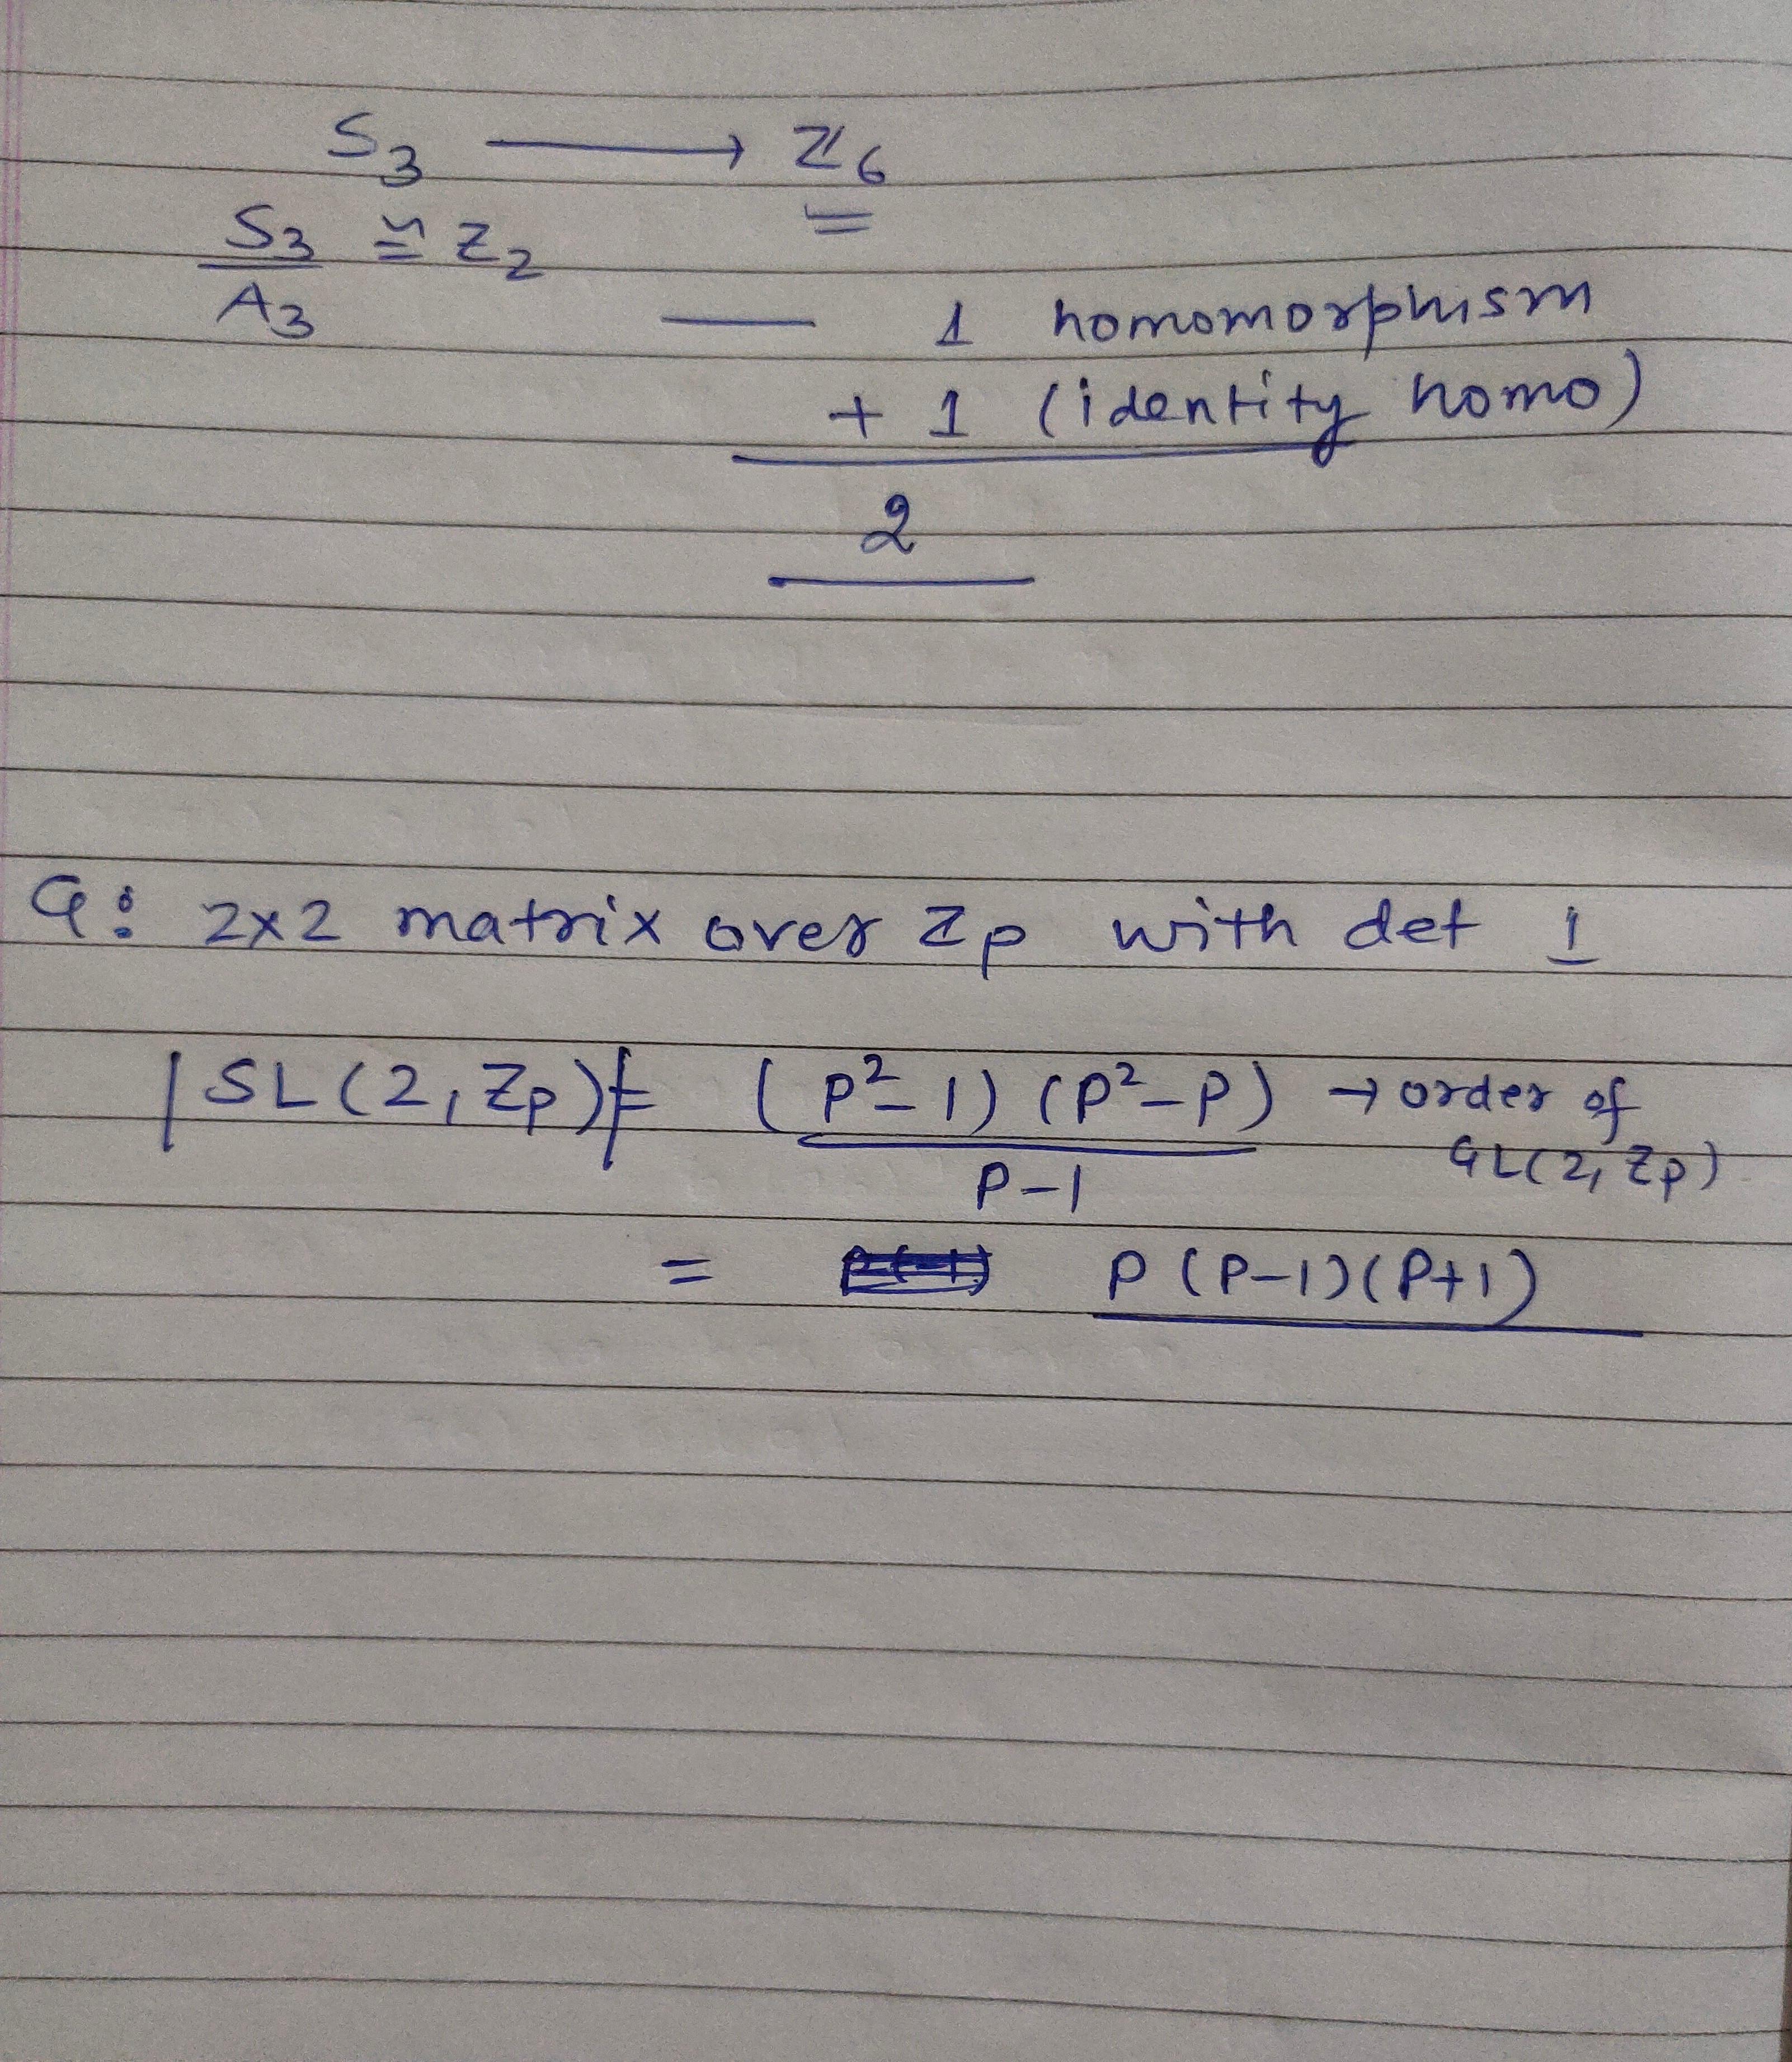 S₃ ⟶ Z₆
S₃/A₃ ≅ Z₂
— 1 homomorphism
+ 1 (identity homo)
2
G: 2x2 matrix over Zp with det 1
|SL(2, Zp)| = (p²-1)(p²-p)/p-1 → order of
GL(2, Zp)
= p(p-1)(p+1)